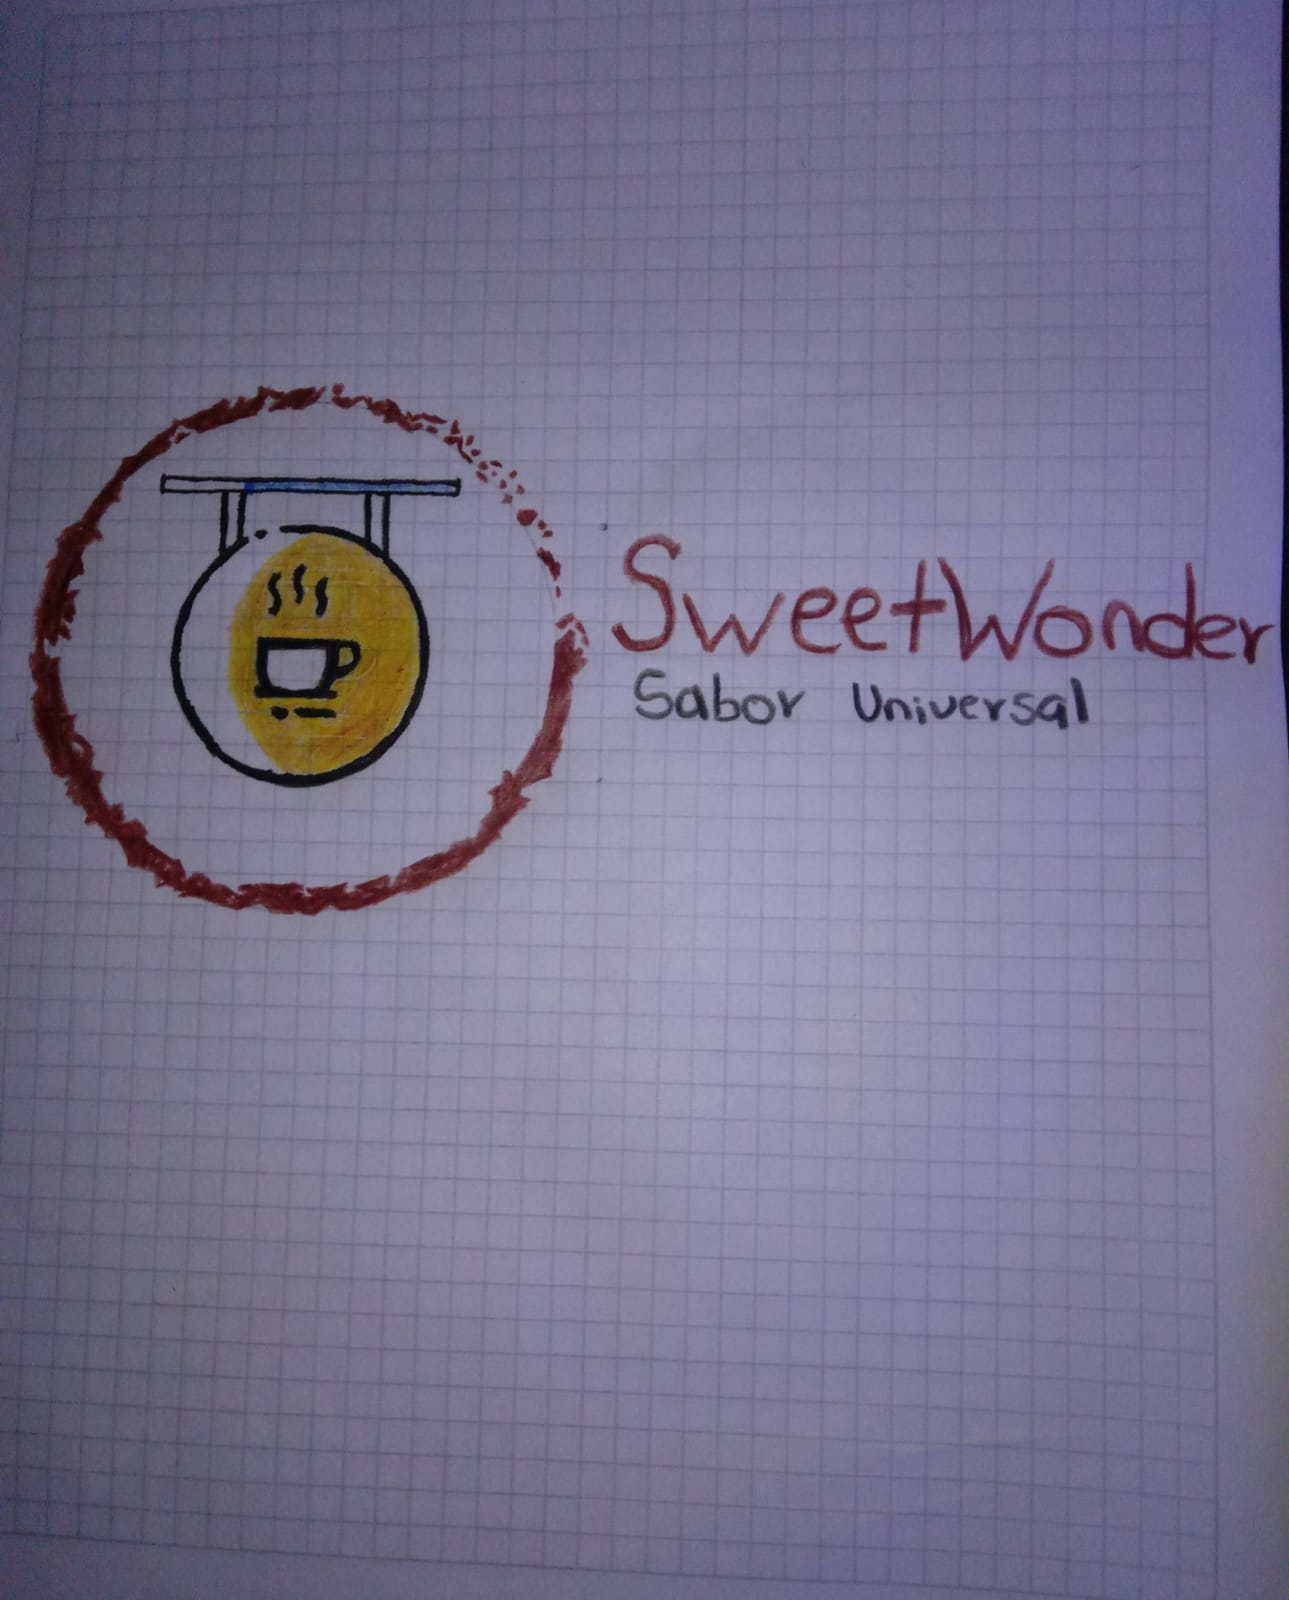 SweetWonder
Sabor Universal